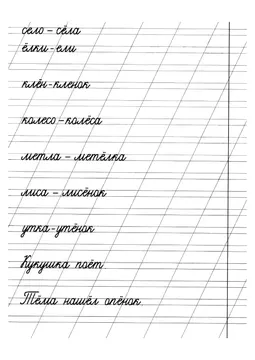 село – сёла
ёлки - ели
клён - кленок
колесо – колёса
метла – метёлка
лиса – лисёнок
утка - утёнок
Кукушка поёт
Тёма нашёл опёнок.